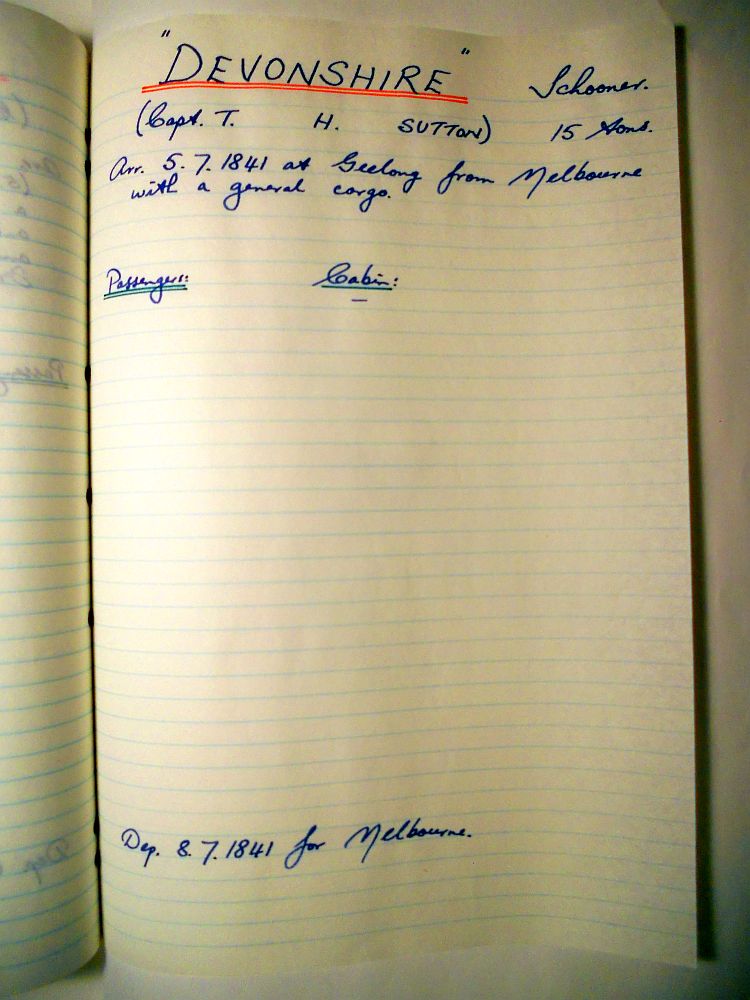 "DEVONSHIRE" Schooner.
(Capt. T. H. SUTTON) 15 tons.
Arr. 5.7.1841 at Geelong from Melbourne
with a general cargo.
Passengers: Cabin:
—
Dep. 8.7.1841 for Melbourne.